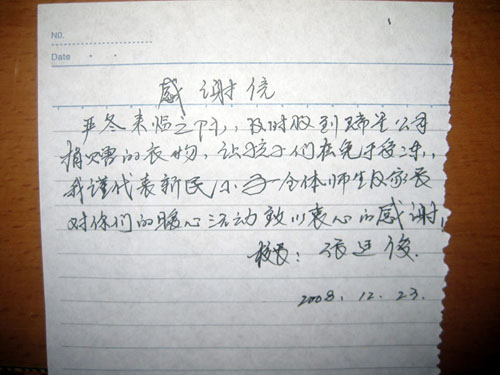 1
No.
Date
感谢信
严冬来临之际，及时收到瑞星公司
捐灾害的衣物，让孩子们在免于受冻，
我谨代表新民小学全体师生及家长
对你们的暖心活动致以衷心的感谢！
校长：张廷俊.
2008.12.23.